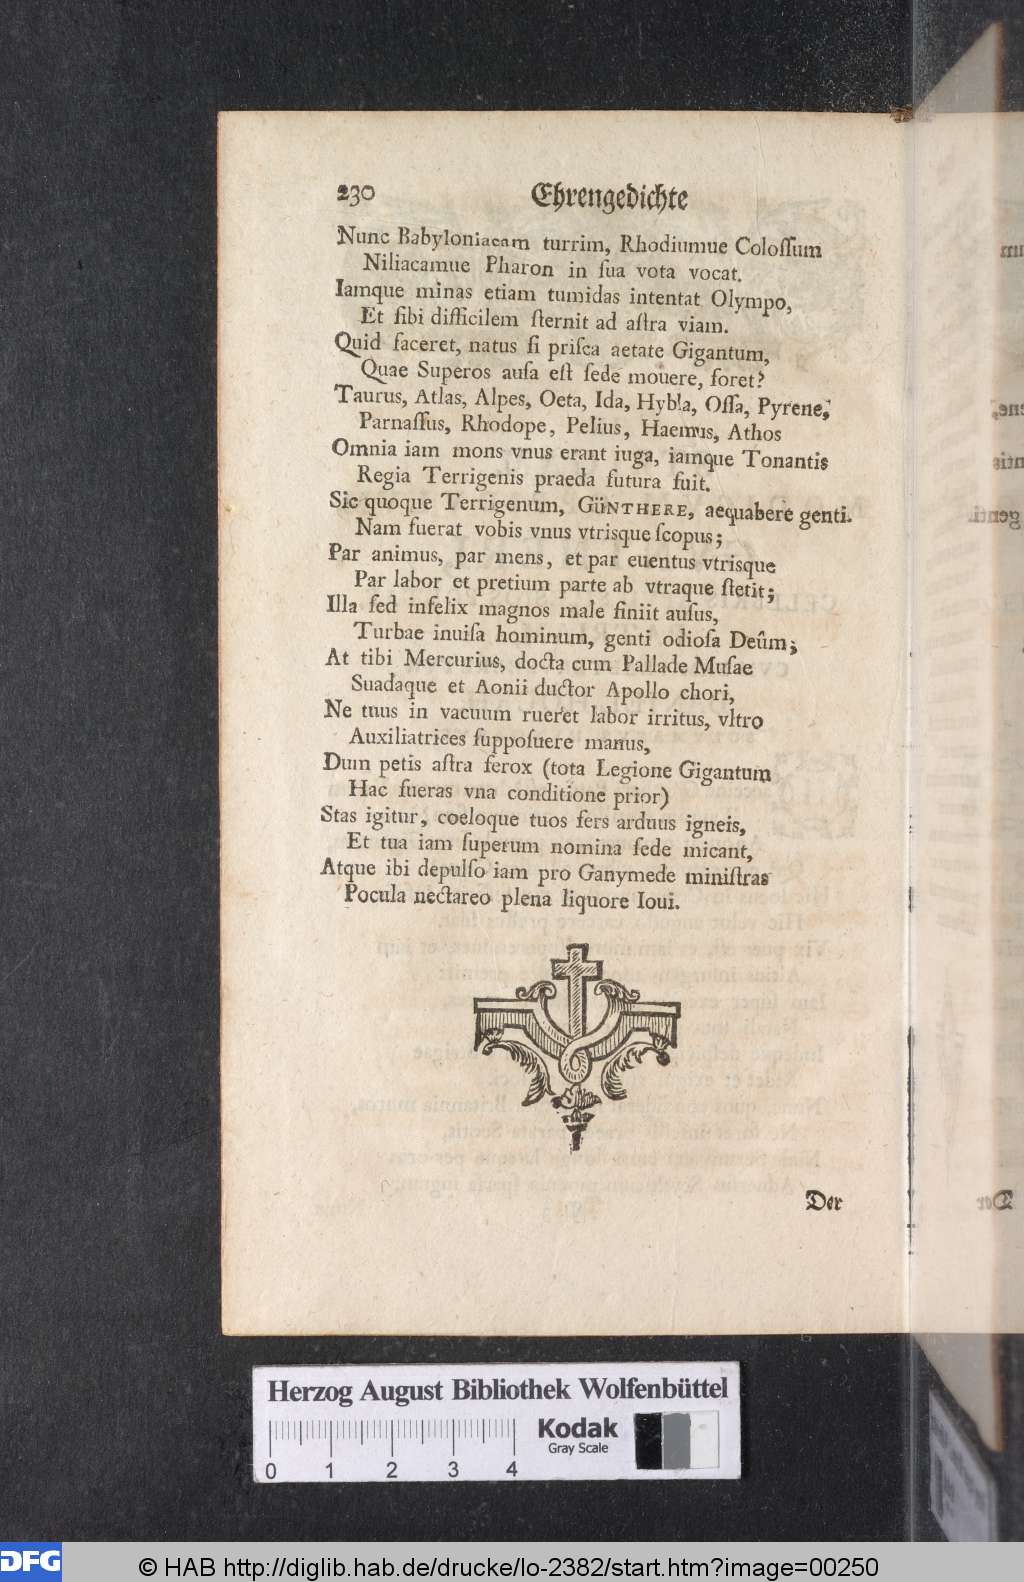 230 Ehrengedichte
Nunc Babyloniacam turrim, Rhodiumue Coloſſum
Niliacamue Pharon in ſua vota vocat.
Iamque minas etiam tumidas intentat Olympo,
Et ſibi difficilem ſternit ad aſtra viam.
Quid faceret, natus ſi priſca aetate Gigantum,
Quae Superos auſa eſt ſede mouere, foret?
Taurus, Atlas, Alpes, Oeta, Ida, Hybla, Oſſa, Pyrene,
Parnaſſus, Rhodope, Pelius, Haemus, Athos
Omnia iam mons vnus erant iuga, iamque Tonantis
Regia Terrigenis praeda futura fuit.
Sic quoque Terrigenum, GÜNTHERE, aequabere genti.
Nam fuerat vobis vnus vtrisque ſcopus;
Par animus, par mens, et par euentus vtrisque
Par labor et pretium parte ab vtraque ſtetit;
Illa ſed infelix magnos male finiit auſus,
Turbae inuiſa hominum, genti odioſa Deûm;
At tibi Mercurius, docta cum Pallade Muſae
Suadaque et Aonii ductor Apollo chori,
Ne tuus in vacuum rueret labor irritus, vltro
Auxiliatrices ſuppoſuere manus,
Dum petis aſtra ferox (tota Legione Gigantum
Hac fueras vna conditione prior)
Stas igitur, coeloque tuos fers arduus igneis,
Et tua iam ſuperum nomina ſede micant,
Atque ibi depulſo iam pro Ganymede miniſtras
Pocula nectareo plena liquore Ioui.
Der
Herzog August Bibliothek Wolfenbüttel
Kodak
Gray Scale
0 1 2 3 4
DFG
© HAB http://diglib.hab.de/drucke/lo-2382/start.htm?image=00250